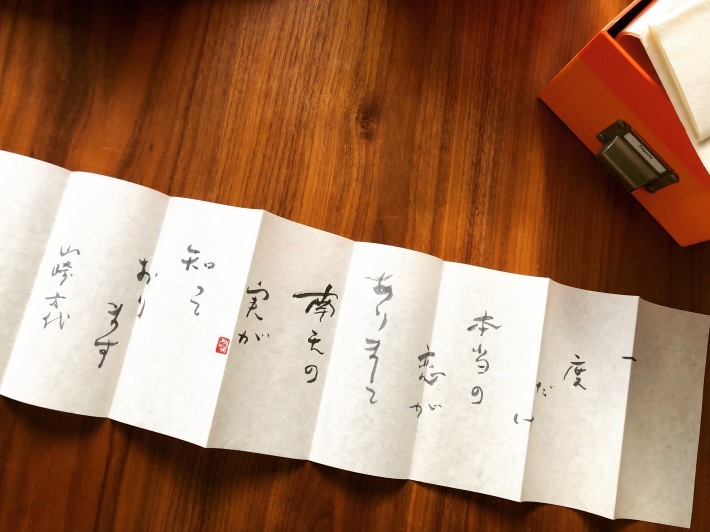 一
度
だけ
本当の
恋が
ありまして
南天の
実が
知って
おり
ます
山崎方代